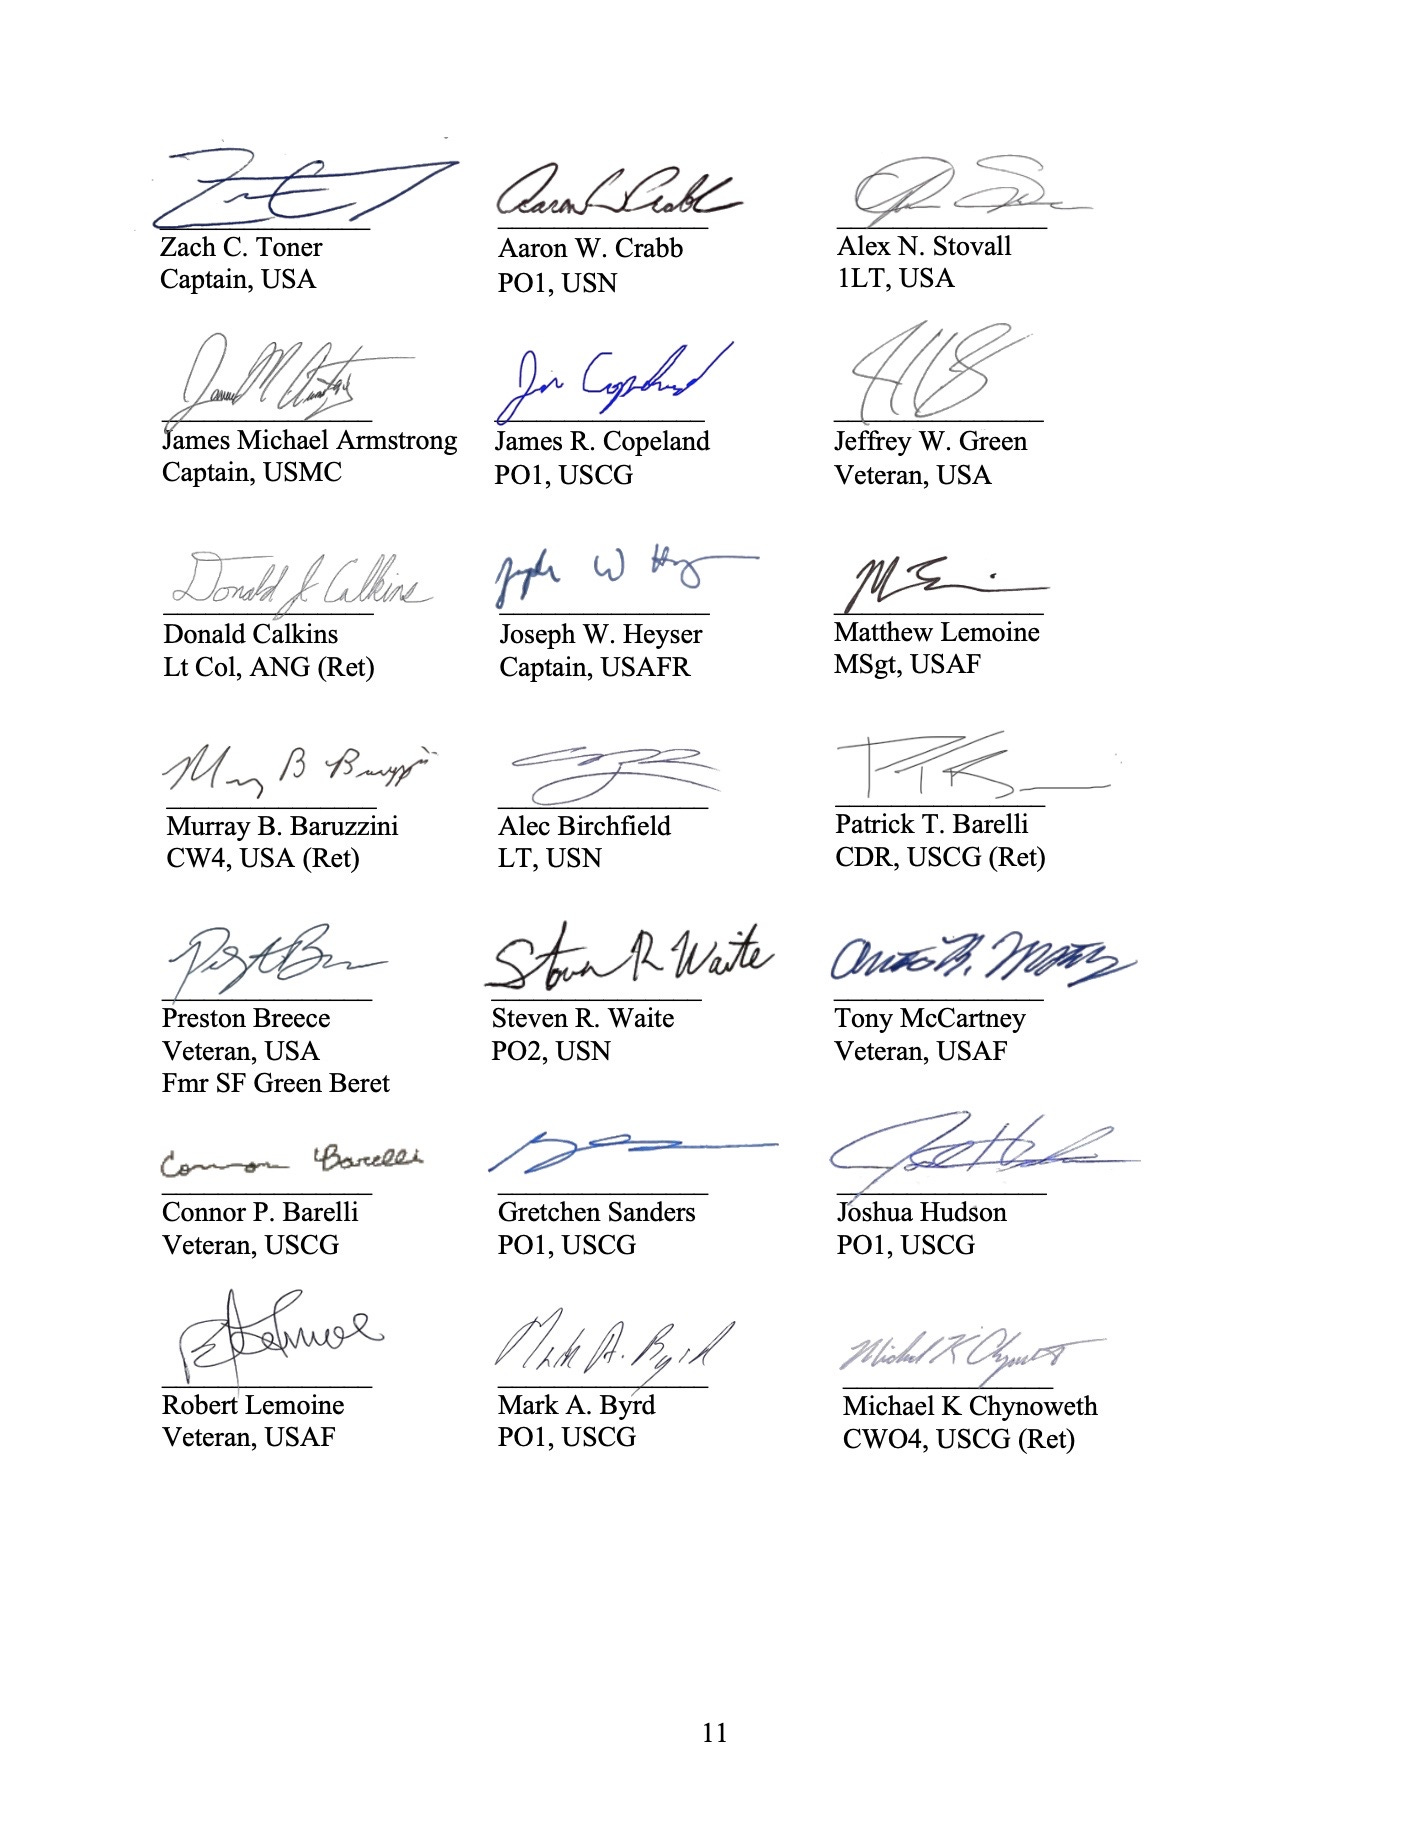 Zach C. Toner
Captain, USA
Aaron W. Crabb
PO1, USN
Alex N. Stovall
1LT, USA
James Michael Armstrong
Captain, USMC
Jim Copeland
James R. Copeland
PO1, USCG
Jeffrey W. Green
Veteran, USA
Donald J Calkins
Donald Calkins
Lt Col, ANG (Ret)
Joseph W. Heyser
Captain, USAFR
Matthew Lemoine
MSgt, USAF
Murray B. Baruzzini
CW4, USA (Ret)
Alec Birchfield
LT, USN
Patrick T. Barelli
CDR, USCG (Ret)
Preston Breece
Veteran, USA
Fmr SF Green Beret
Steven R Waite
Steven R. Waite
PO2, USN
Tony McCartney
Veteran, USAF
Connor Barelli
Connor P. Barelli
Veteran, USCG
Gretchen Sanders
PO1, USCG
Joshua Hudson
PO1, USCG
Robert Lemoine
Veteran, USAF
Mark A. Byrd
Mark A. Byrd
PO1, USCG
Michael K Chynoweth
CWO4, USCG (Ret)
11